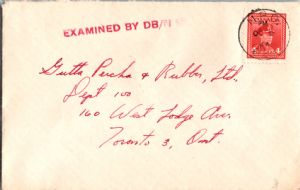 EXAMINED BY DB/
Gutta Percha & Rubber, Ltd.
Dept 100
160 West Lodge Ave.
Toronto 3, Ont.
4